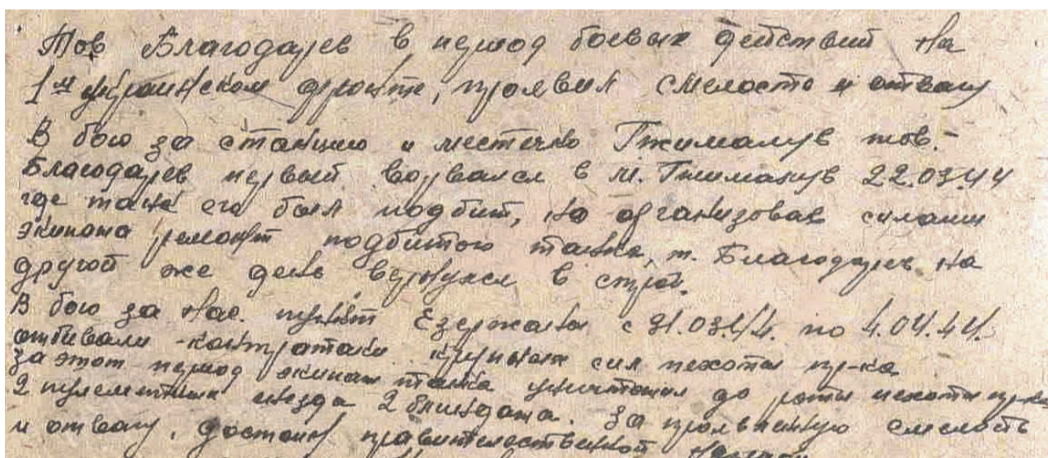 Тов Благодарев в период боевых действий на
1м Украинском фронте, проявил смелость и отвагу
В бою за станцию и местечко Гжималув тов.
Благодарев первый ворвался в м. Гжималув 22.03.44
где танк его был подбит, но организовав силами
экипажа ремонт подбитого танка, т. Благодарев на
другой же день вернулся в строй.
В бою за нас. пункт Езержаны с 31.03.44. по 4.04.44.
отбивали контратаки крупных сил пехоты пр-ка
за этот период экипаж танка уничтожил до роты пехоты пр-ка
2 пулеметных гнезда 2 блиндажа. За проявленную смелость
и отвагу, достоин правительственной награды